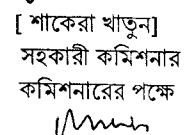 [ শাকেরা খাতুন]
সহকারী কমিশনার
কমিশনারের পক্ষে